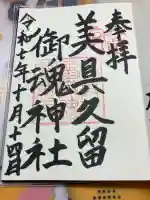 奉拝
美具久留
御魂神社
令和七年十月十四日